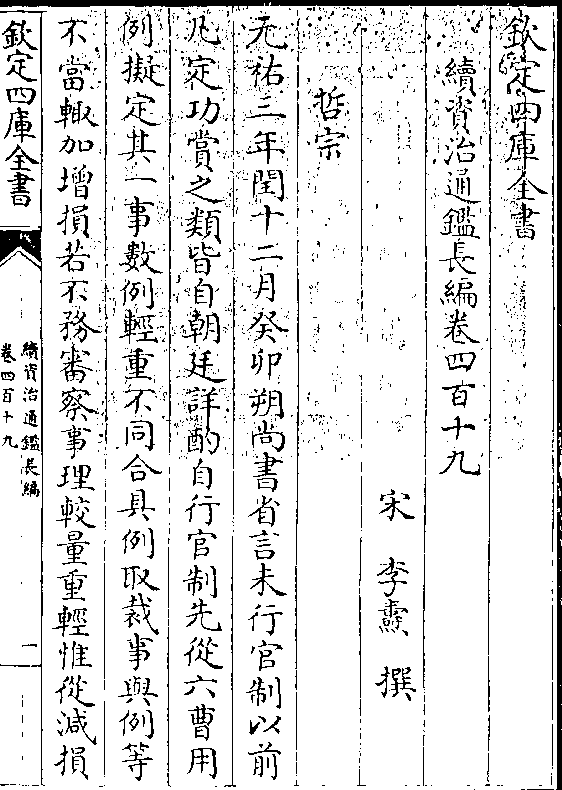 欽定四庫全書
續資治通鑑長編卷四百十九
宋 李燾 撰
哲宗
元祐三年閏十二月癸卯朔尚書省言未行官制以前
凡定功賞之類皆自朝廷詳酌自行官制先從六曹用
例擬定其一事數例輕重不同合具例取裁事與例等
不當輒加增損若不務審察事理較量重輕惟從減損
欽定四庫全書
續資治通鑑長編
卷四百十九
一